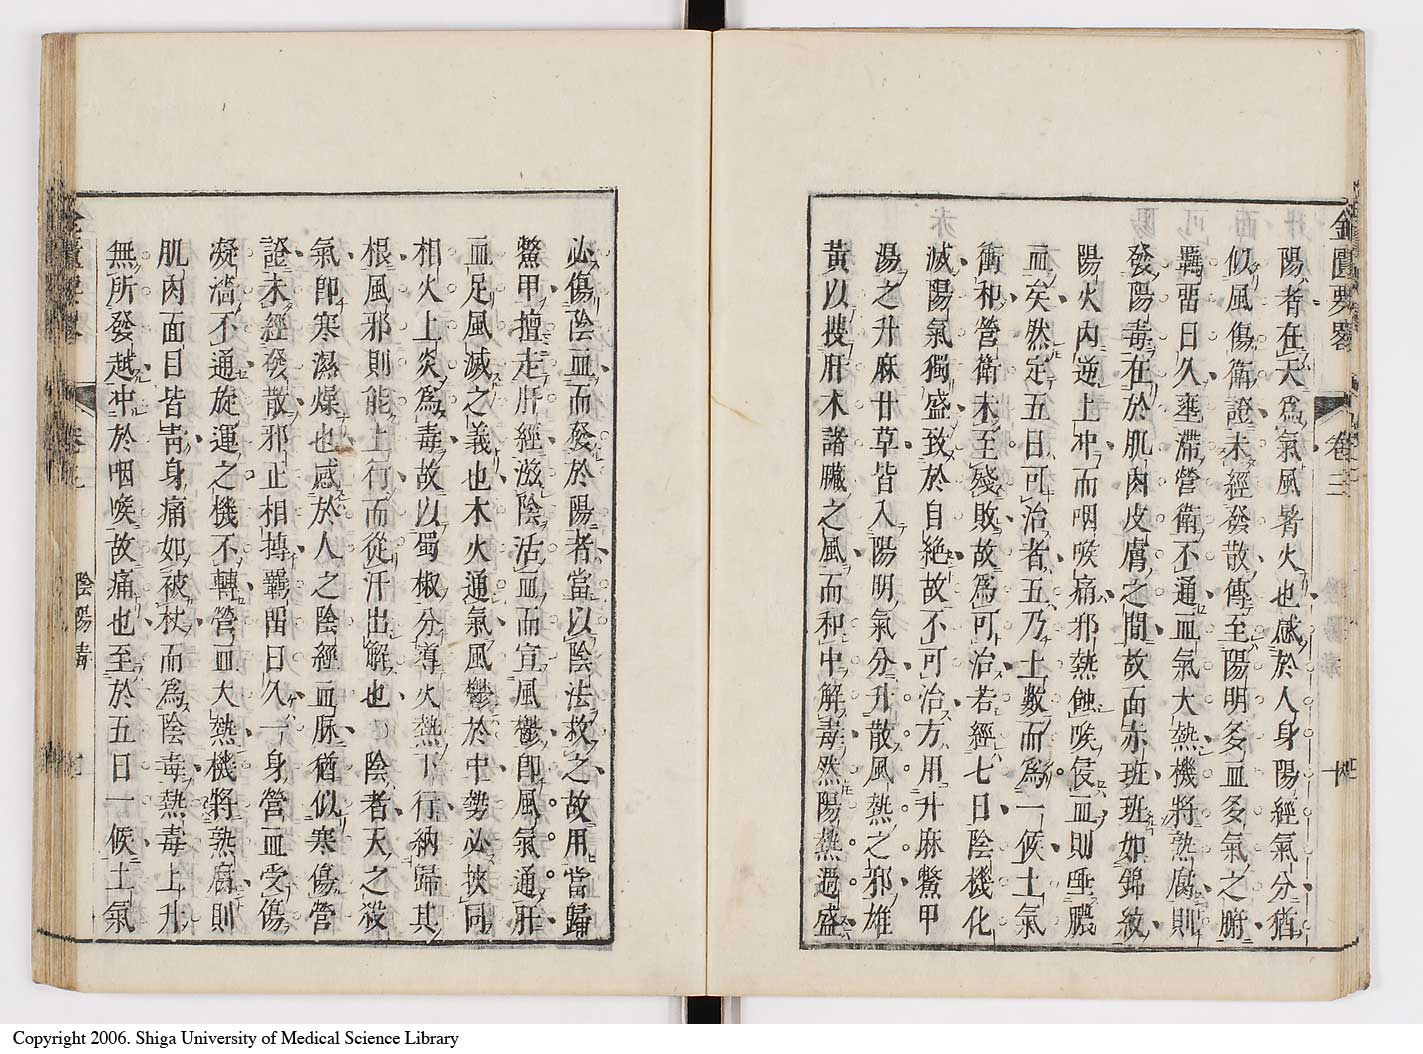 金匱要略
卷三
陽者在天爲氣風暑火也感於人身陽經氣分猶
似風傷衛證未經發散傳至陽明多血多氣之腑
羈畱日久壅滯營衛不通血氣大熱機將熱腐則
發陽毒在於肌肉皮膚之間故面赤班班如錦紋
陽火內逆上冲而咽喉痛邪熱蝕喉侵血則唾膿
血矣然定五日可治者五乃土數而爲一候土氣
衝和營衛未至殘敗故爲可治若經七日陰機化
滅陽氣獨盛致於自絶故不可治方用升麻鱉甲
湯之升麻甘草皆入陽明氣分升散風熱之邪雄
黃以搜肝木諸臟之風而和中解毒然陽熱過盛
必傷陰血而發於陽者當以陰法救之故用當歸
鱉甲擅走肝經滋陰活血而宣風鬱卽風氣通肝
血足風滅之義也木火通氣風鬱於中勢必挾同
相火上炎爲毒故以蜀椒分導火熱下行納歸其
根風邪則能上行而從汗出解也○陰者天之殺
氣卽寒濕燥也感於人之陰經血脉猶似寒傷營
證未經發散邪正相摶羈畱日久一身營血受傷
凝濇不通旋運之機不轉營血大熱機將熟腐則
肌肉面目皆靑身痛如被杖而爲陰毒熱毒上升
無所發越冲於咽喉故痛也至於五日一候土氣
陰陽毒
Copyright 2006. Shiga University of Medical Science Library